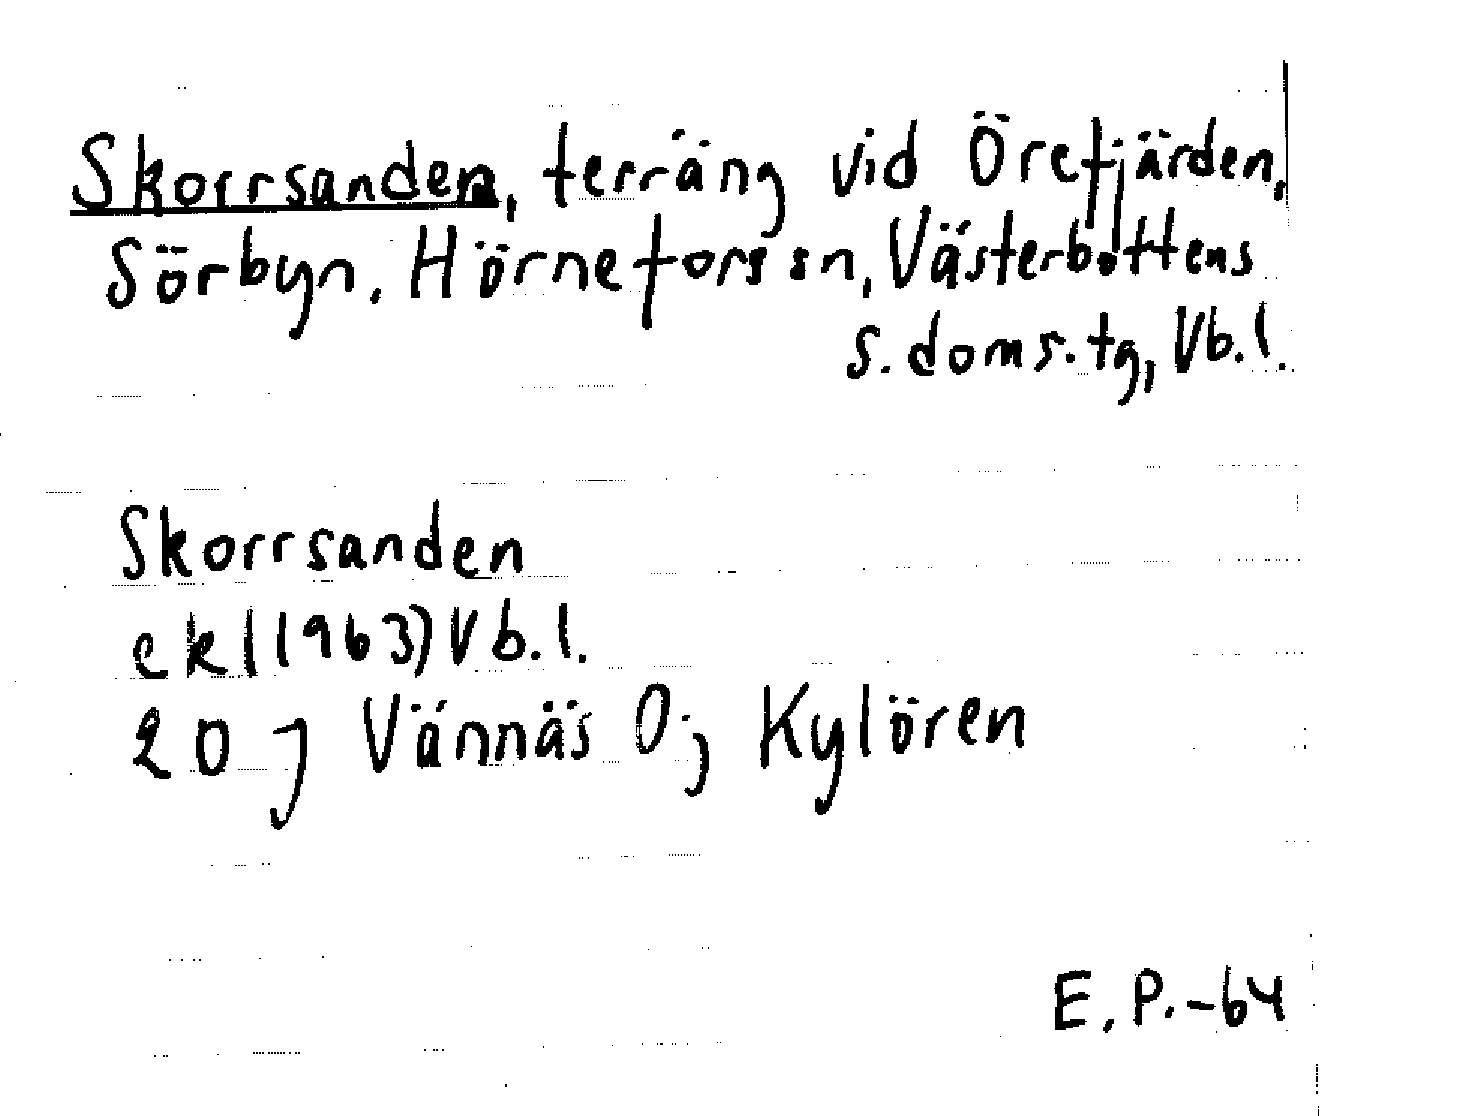 Skorrsanden, terräng vid Örefjärden,
Sörbyn, Hörneforssn, Västerbottens
s. doms.tg, Vb.l.
Skorrsanden
ekl (1963) Vb.l.
20 J Vännäs O; Kylören
E.P.-64